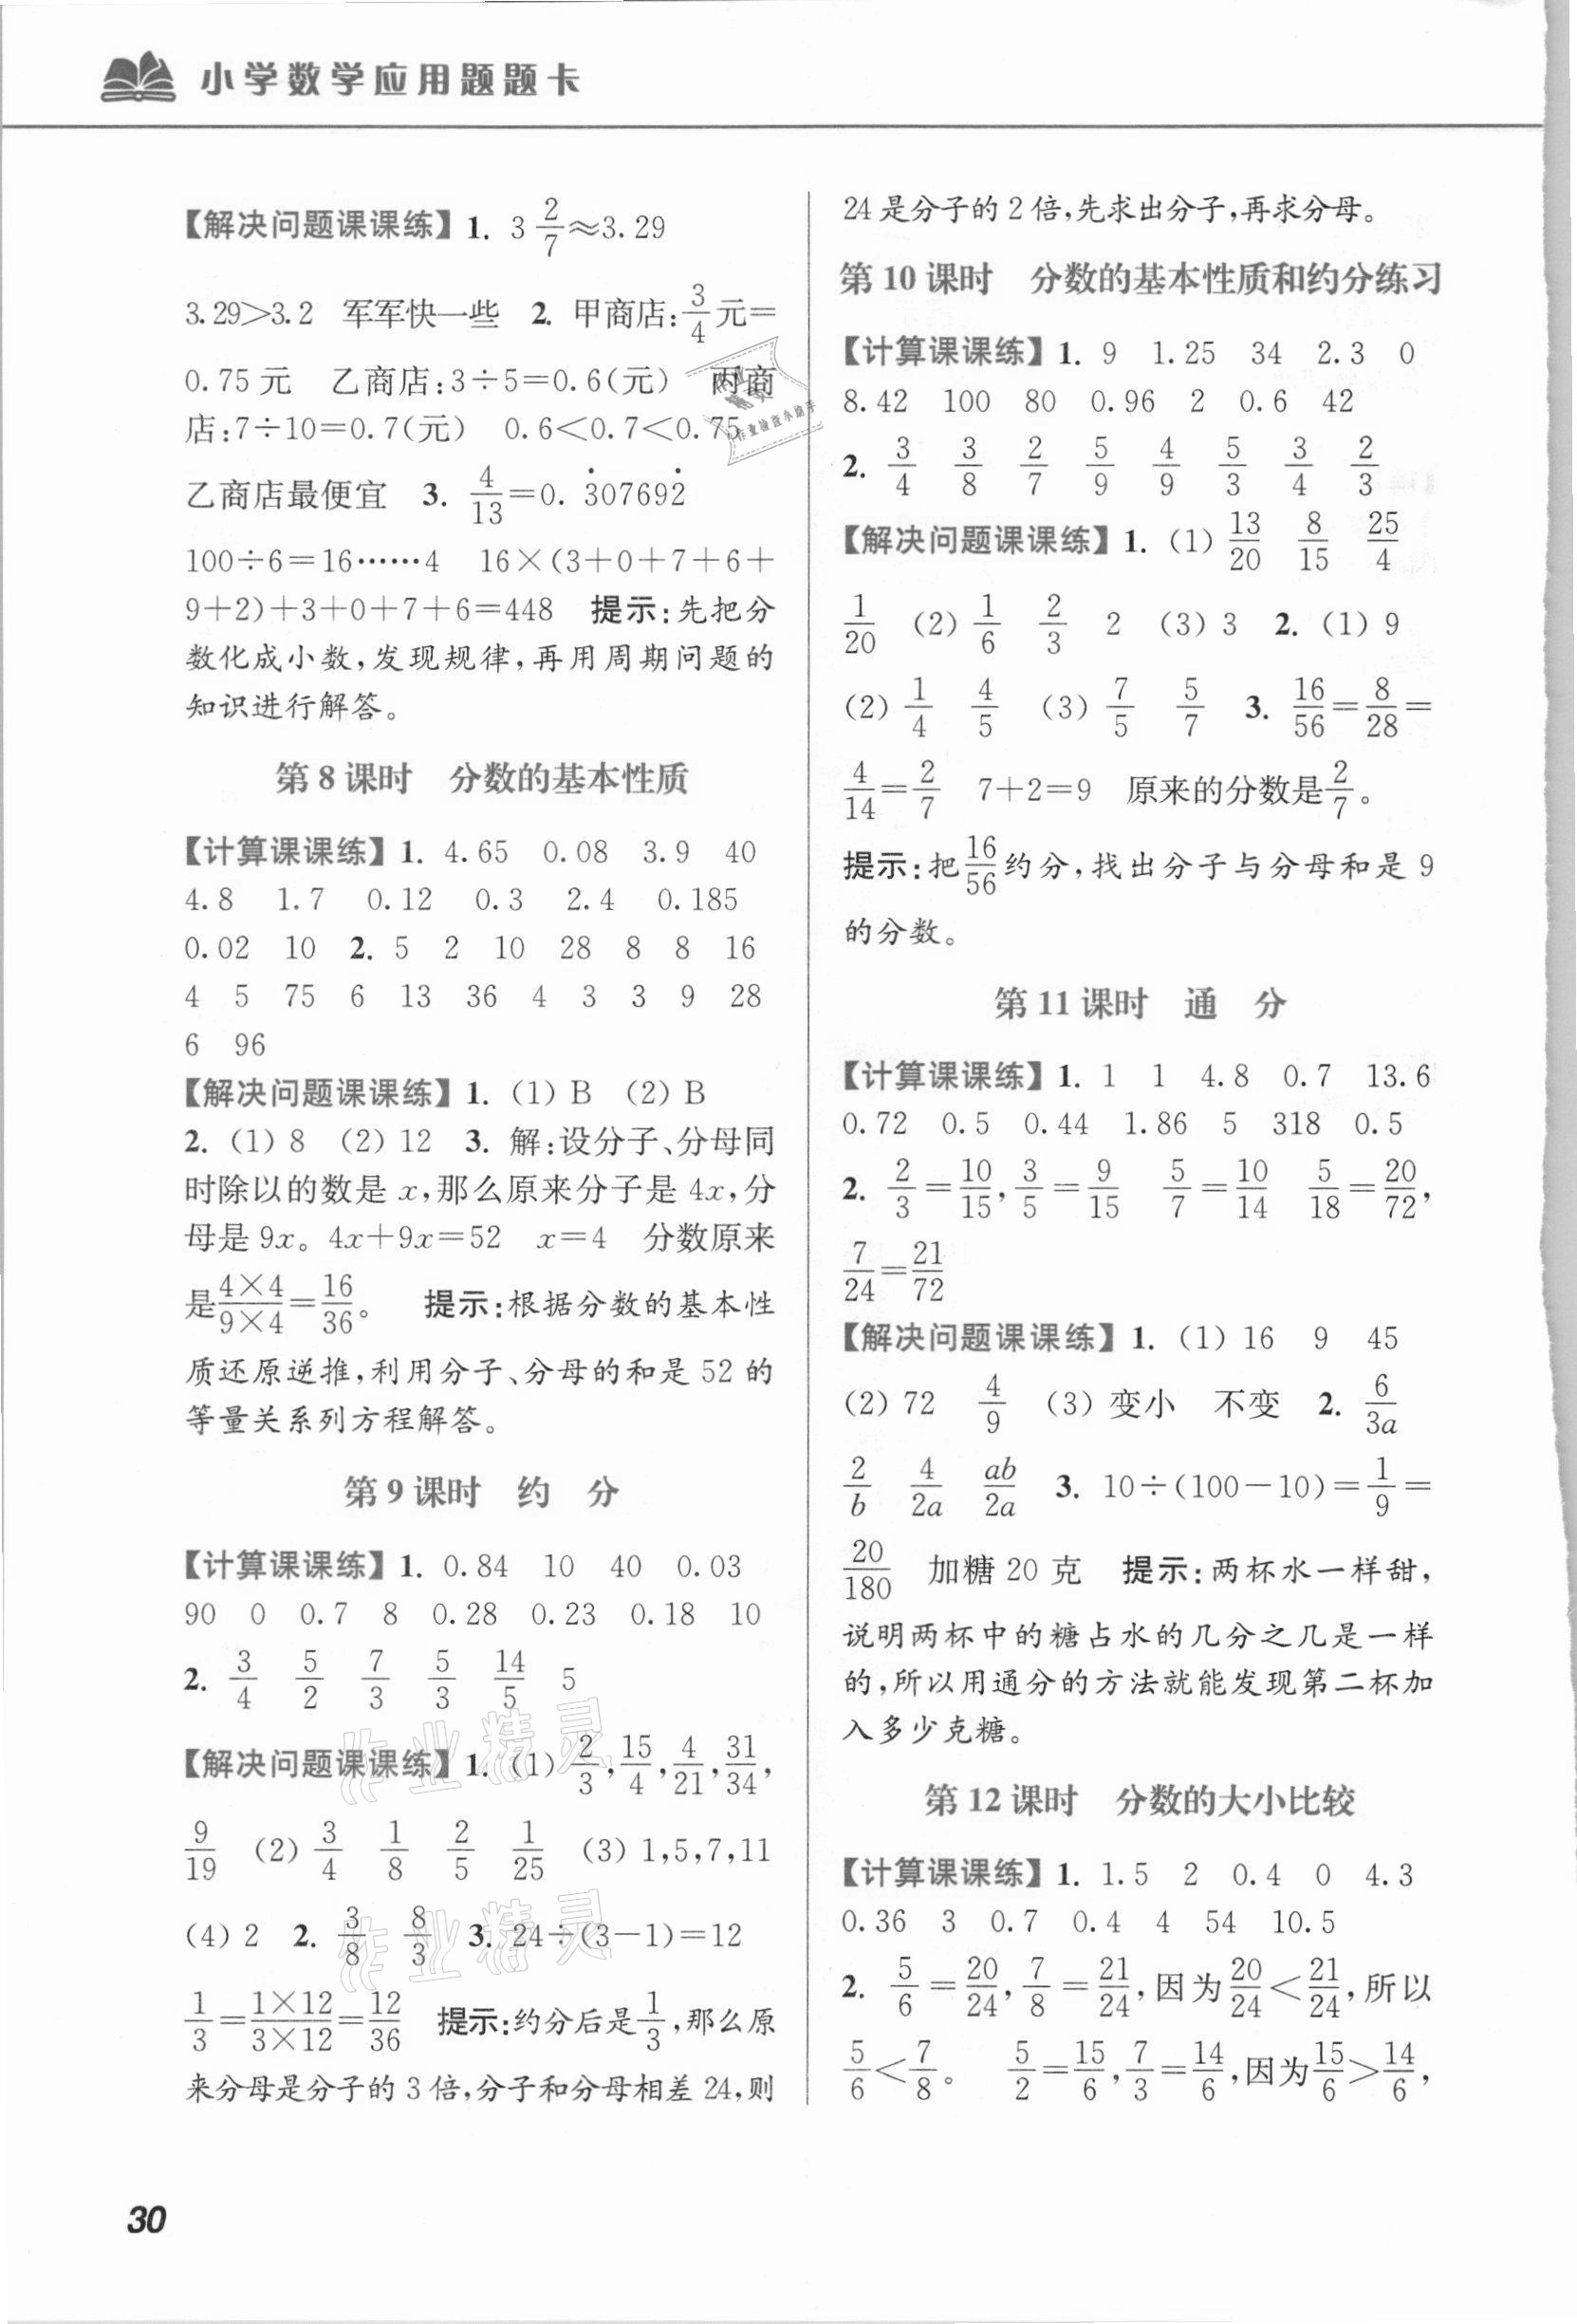 小学数学应用题题卡
【解决问题课课练】1. 3 2/7≈3.29
3.29>3.2 军军快一些 2. 甲商店:3/4元=
0.75元 乙商店:3÷5=0.6(元) 丙商
店:7÷10=0.7(元) 0.6<0.7<0.75
乙商店最便宜 3. 4/13=0.3̇07692̇
100÷6=16……4 16×(3+0+7+6+
9+2)+3+0+7+6=448 提示:先把分
数化成小数,发现规律,再用周期问题的
知识进行解答。
第8课时 分数的基本性质
【计算课课练】1. 4.65 0.08 3.9 40
4.8 1.7 0.12 0.3 2.4 0.185
0.02 10 2. 5 2 10 28 8 8 16
4 5 75 6 13 36 4 3 3 9 28
6 96
【解决问题课课练】1. (1)B (2)B
2. (1)8 (2)12 3. 解:设分子、分母同
时除以的数是x,那么原来分子是4x,分
母是9x。4x+9x=52 x=4 分数原来
是4×4/9×4=16/36。 提示:根据分数的基本性
质还原逆推,利用分子、分母的和是52的
等量关系列方程解答。
第9课时 约 分
【计算课课练】1. 0.84 10 40 0.03
90 0 0.7 8 0.28 0.23 0.18 10
2. 3/4 5/2 7/3 5/3 14/5 5
【解决问题课课练】1. (1)2/3,15/4,4/21,31/34,
9/19 (2)3/4 1/8 2/5 1/25 (3)1,5,7,11
(4)2 2. 3/8 8/3 3. 24÷(3-1)=12
1/3=1×12/3×12=12/36 提示:约分后是1/3,那么原
来分母是分子的3倍,分子和分母相差24,则
24是分子的2倍,先求出分子,再求分母。
第10课时 分数的基本性质和约分练习
【计算课课练】1. 9 1.25 34 2.3 0
8.42 100 80 0.96 2 0.6 42
2. 3/4 3/8 2/7 5/9 4/9 5/3 3/4 2/3
【解决问题课课练】1. (1)13/20 8/15 25/4
1/20 (2)1/6 2/3 2 (3)3 2. (1)9
(2)1/4 4/5 (3)7/5 5/7 3. 16/56=8/28=
4/14=2/7 7+2=9 原来的分数是2/7。
提示:把16/56约分,找出分子与分母和是9
的分数。
第11课时 通 分
【计算课课练】1. 1 1 4.8 0.7 13.6
0.72 0.5 0.44 1.86 5 318 0.5
2. 2/3=10/15,3/5=9/15 5/7=10/14 5/18=20/72,
7/24=21/72
【解决问题课课练】1. (1)16 9 45
(2)72 4/9 (3)变小 不变 2. 6/3a
2/b 4/2a ab/2a 3. 10÷(100-10)=1/9=
20/180 加糖20克 提示:两杯水一样甜,
说明两杯中的糖占水的几分之几是一样
的,所以用通分的方法就能发现第二杯加
入多少克糖。
第12课时 分数的大小比较
【计算课课练】1. 1.5 2 0.4 0 4.3
0.36 3 0.7 0.4 4 54 10.5
2. 5/6=20/24,7/8=21/24,因为20/24<21/24,所以
5/6<7/8。 5/2=15/6,7/3=14/6,因为15/6>14/6,
30
作业精灵
作业精灵